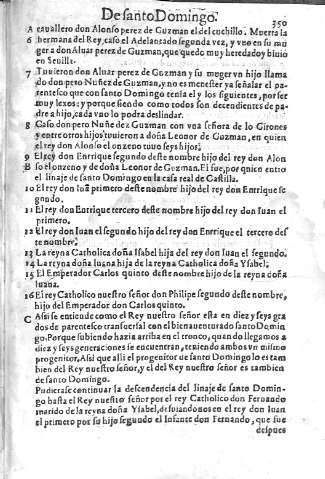 De santo Domingo.
350
A cauallero don Alonso perez de Guzman el del cuchillo. Muerta la
6 hermana del Rey, caso el Adelantado segunda vez, y vuo en su mu
ger a don Aluar perez de Guzman, que quedo muy heredado y biuio
en Seuilla.
7 Tuuieron don Aluar perez de Guzman y su muger vn hijo llama
do don pero Nuñez de Guzman, y no es menester ya señalar el pa-
rentesco que con santo Domingo tenia el y los siguientes, por ser
muy lexos: y porque siendo como todos son decendientes de pa-
dre a hijo, cada vno lo podra deslindar.
8 Caso don pero Nuñez de Guzman con vna señora de lo Girones
y entre otros hijos tuuieron a doña Leonor de Guzman, en quien
el rey don Alonso el onzeno tuuo seys hijos.
9 El rey don Enrrique segundo deste nombre hijo del rey don Alon
B so el onzeno y de doña Leonor de Guzman. El fue, por quien entro
el linaje de santo Domingo en la casa real de Castilla.
10 El rey don Ioã primero deste nombre hijo del rey don Enrrique se
gundo.
11 El rey don Enrrique tercero deste nombre hijo del rey don Iuan el
primero.
12 El rey don Iuan el segundo hijo del rey don Enrrique el tercero des
te nombre.
13 La reyna Catholica doña Isabel hija del rey don Iuan el segundo.
14 La reyna doña Iuana hija de la reyna Catholica doña Ysabel.
15 El Emperador Carlos quinto deste nombre hijo de la reyna doña
Iuana.
16 El rey Catholico nuestro señor don Philipe segundo deste nombre,
hijo del Emperador don Carlos quinto.
C Assi se entiende como el Rey nuestro señor esta en diez y seys gra
dos de parentesco transuersal con el bienauenturado santo Domin
go. Porque subiendo hazia arriba en el tronco, quando llegamos a
diez y seys generaciones se encuentran, teniendo ambos vn mismo
progenitor. Assi que alli el progenitor de santo Domingo lo es tam
bien del Rey nuestro señor, y el del Rey nuestro señor es tambien
de santo Domingo.
Pudierase continuar la descendencia del linaje de santo Domin-
go hasta el Rey nuestro señor por el rey Catholico don Fernando
marido de la reyna doña Ysabel, desuiandonos en el rey don Iuan
el primero por su hijo segundo el Infante don Fernando, que fue
despues